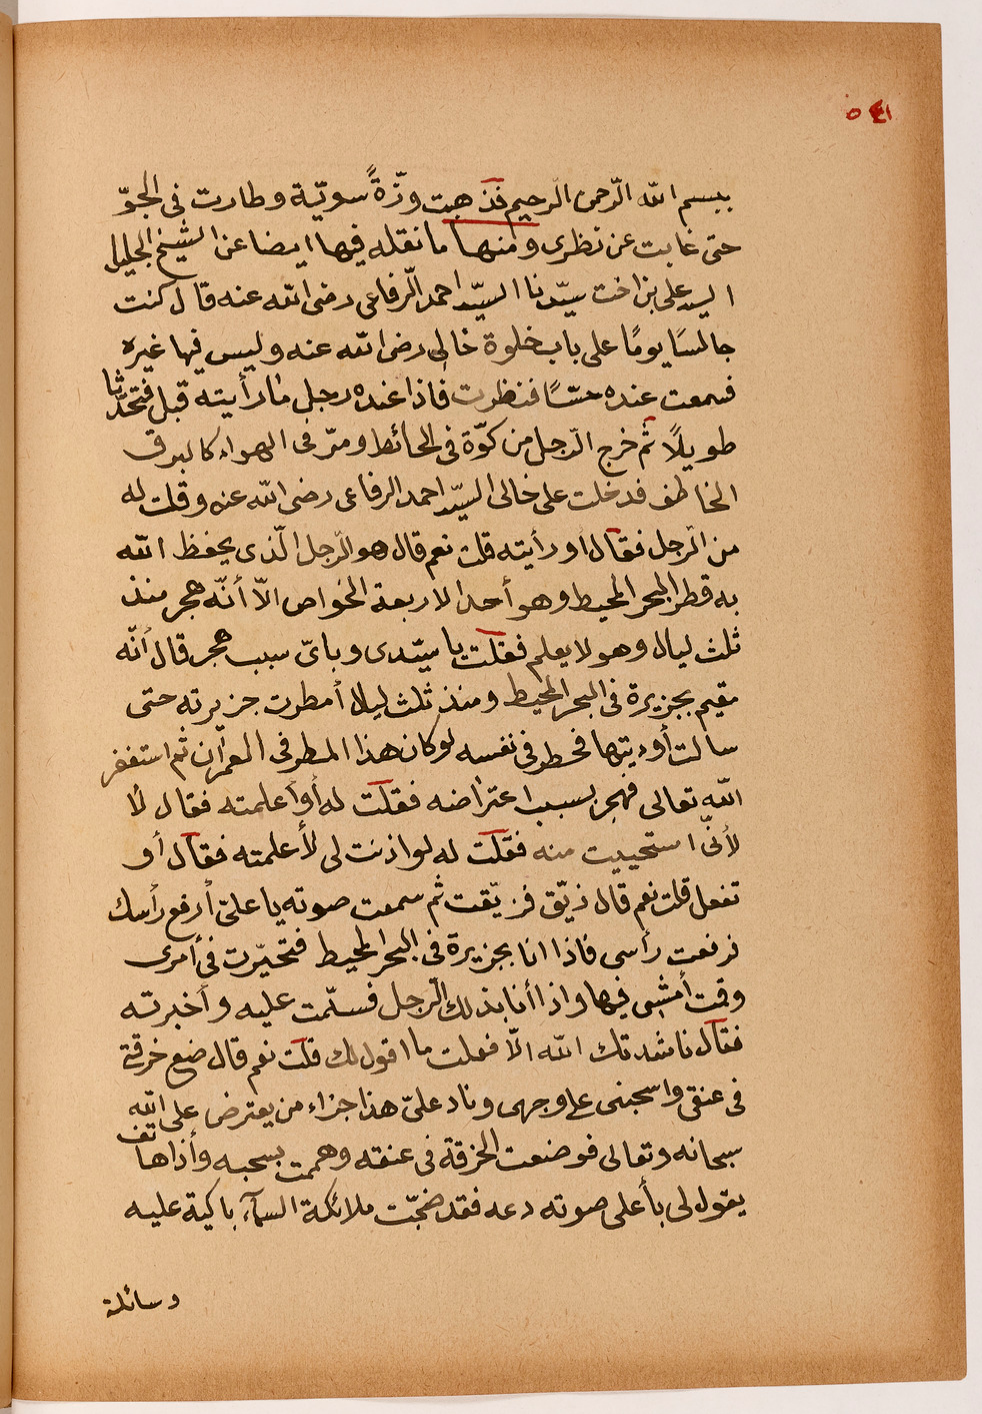 ببسم الله الرّحمن الرحيم فذهبت وزّةً سويّة وطارت فى الجوّ
حتى غابت عن نظرى ومنها ما نقله فيها ايضا عن الشيخ الجليل
السيد على بن اخت سيّدنا السيّد احمد الرّفاعى رضى الله عنه قال كنت
جالسًا يومًا على باب خلوة خالى رضى الله عنه وليس فيها غيره
فسمعت عنده حسًّا فنظرت فاذا عنده رجل ما رأيته قبل فتحدّثا
طويلًا ثم خرج الرّجل من كوّة فى الحائط ومرّ فى الهواء كالبرق
الخاطف فدخلت على خالى السيّد احمد الرفاعى رضى الله عنه وقلت له
من الرّجل فقال او رأيته قلت نعم قال هو الرّجل الّذى يحفظ الله
به قطر البحر المحيط وهو أحد الاربعة الخواص الاّ أنّه هجر منذ
ثلث ليال وهو لا يعلم فقلت يا سيّدى وبائّ سبب هجر قال أنّه
مقيم بجزيرة فى البحر المحيط ومنذ ثلث ليال أمطرت جزيرته حتى
سالت أوديتها فخطر فى نفسه لو كان هذا المطر فى العمران ثم استغفر
الله تعالى فهجر بسبب اعتراضه فقلت له أو أعلمته فقال لا
لأنّى استحييت منه فقلت له لو اذنت لى لأعلمته فقال أو
تفعل قلت نعم قال زيّق فزيّقت ثم سمعت صوته يا علىّ أرفع رأسك
فرفعت رأسى فاذا انا بجزيرة فى البحر المحيط فتحيّرت فى أمرى
وقمت أمشى فيها واذا أنا بذلك الرّجل فسلّمت عليه وأخبرته
فقال ناشدتك الله الاّ فعلت ما اقول لك قلت نعم قال ضع خرقتى
فى عنقى واسحبنى على وجهى وناد علىّ هذا جزاء من يعترض على الله
سبحانه وتعالى فوضعت الخرقة فى عنقه وهممت بسحبه وأذا هاتف
يقول لى بأعلى صوته دعه فقد ضجّت ملائكة السمآء باكية عليه
وسائلة